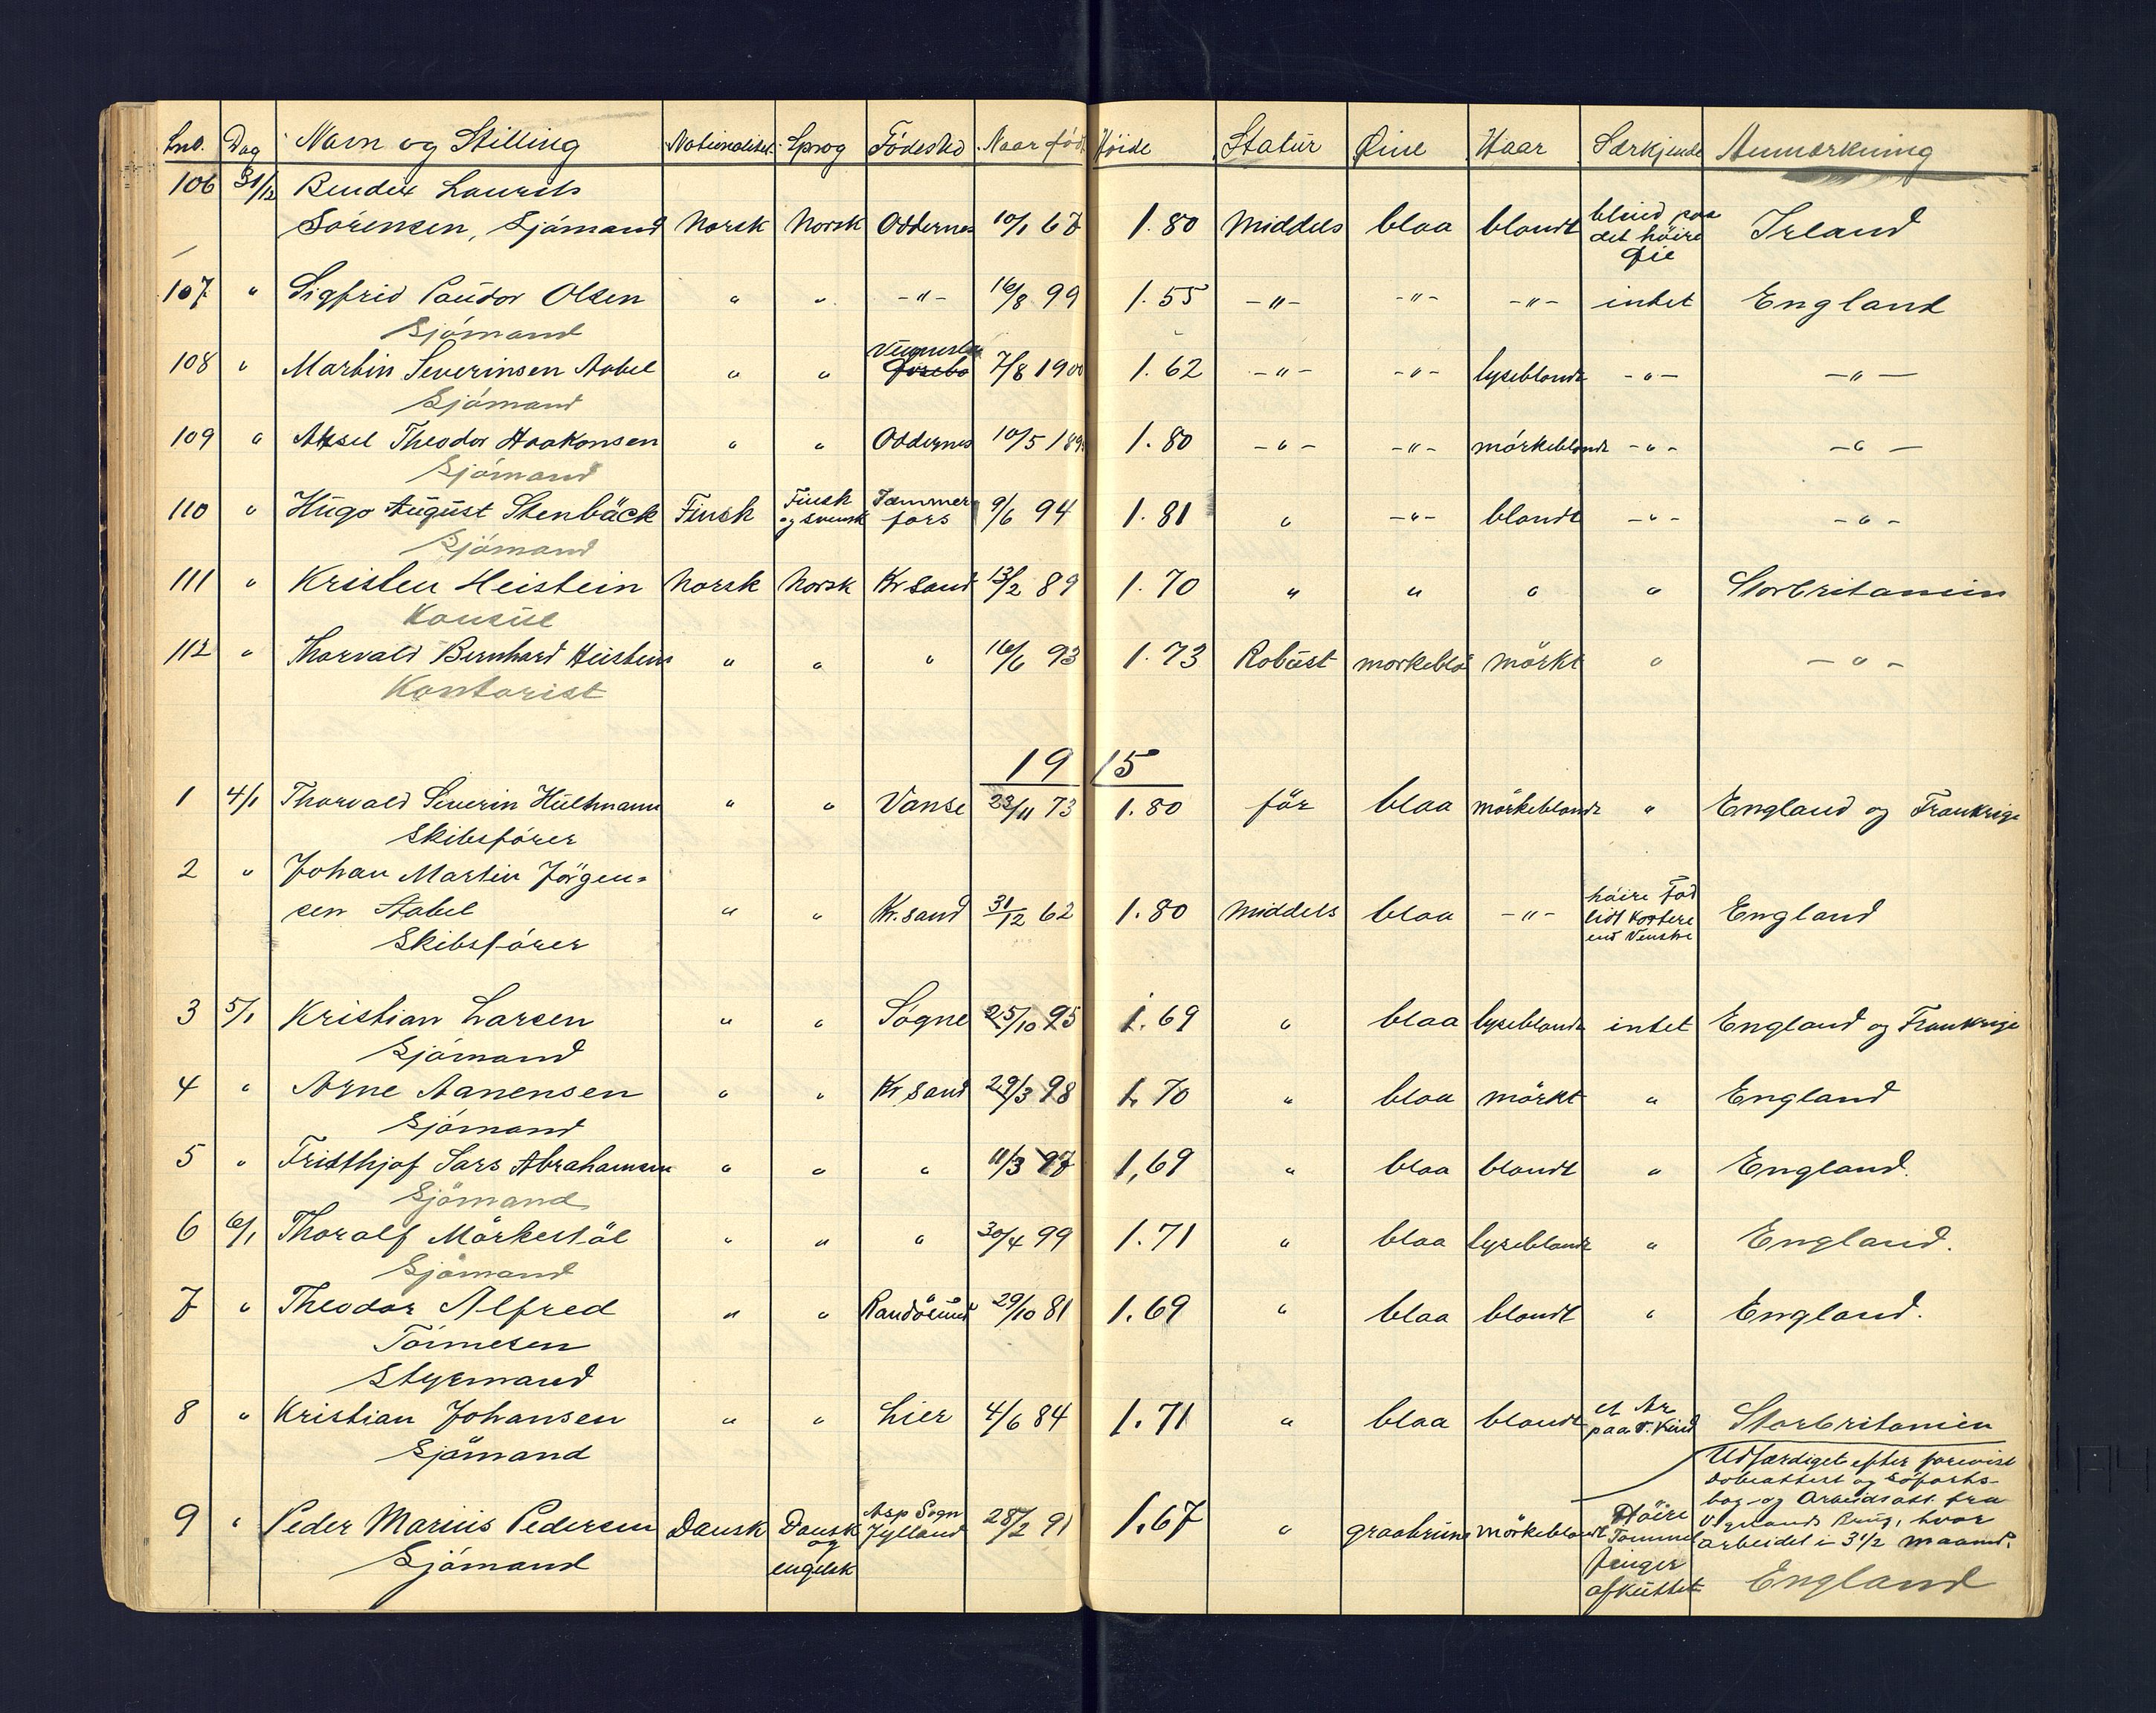 Lno. Dag Navn og Stilling Nationalitet Sprog Födested Naar född Höide Statur Øine Haar Særkjende Anmerkning
106 31/12 Bendix Laurits
Sörensen, Sjömand Norsk Norsk Oddernes 10/1 67 1.80 Middels blaa blondt blind paa det höire Øie Irland
107 " Sigfrid Olsen " " -"- 16/8 99 1.55 -"- -"- -"- intet England
Sjömand
108 " Martin Severinsen Aabel " " Vennesla 7/8 1900 1.62 -"- -"- lyseblondt -"- -"-
Sjömand
109 " Aksel Theodor Haakonsen " " Oddernes 10/5 189 1.80 -"- -"- mörkeblondt -"- -"-
Sjömand
110 " Hugo August Stenbäck Finsk Finsk og svensk Tammerfors 9/6 94 1.81 " -"- blondt -"- -"-
Sjömand
111 " Kristen Heistein Norsk Norsk Kr sand 13/2 89 1.70 " " " " Storbritanien
Konsul
112 " Thorvald Bernhard Heistein " " " 16/6 93 1.73 Robust morkeblå mörkt " -"-
Kontorist
19 15
1 4/1 Thorvald Severin Hultmann " " Vanse 23/11 73 1.80 för blaa mörkeblondt " England og Frankrige
Skibsförer
2 " Johan Martin Jörgen=
sen Aabel " " Kr. sand 31/12 62 1.80 Middels blaa -"- höire Fod lidt kortere end Venstre England
Skibsförer
3 5/1 Kristian Larsen " " Sögne 25/10 95 1.69 " blaa lyseblondt intet England og Frankrige
Sjömand
4 " Arne Aanensen " " Kr sand 29/3 98 1.70 " blaa mörkt " England
Sjömand
5 " Fristhjof Lars Abrahamsen " " " 11/3 97 1,69 " blaa blondt " England.
Sjömand
6 6/1 Thoralf Mörkestöl " " " 30/4 99 1.71 " blaa lyseblondt " England.
Sjömand
7 " Theodor Alfred " " Randösund 29/10 81 1.69 " blaa blondt " England.
Tönnesen
Styrmand
8 " Kristian Johansen " " Lier 4/6 84 1.71 " blaa blondt et Ar paa v. Kind Storbritanien
Sjömand
9 " Peder Marius Pedersen Dansk Dansk og engelsk Asp Sogn Jylland 28/2 91 1.67 " graabrune mörkeblondt Höire Tommelfinger afkuttet Udfærdiget efter forevist
Dobeattest og Söfarts-
bog og Arbeidsatt. fra
Vignlands Brug, hvor
arbeidet i 3 1/2 maaned.
Sjömand England